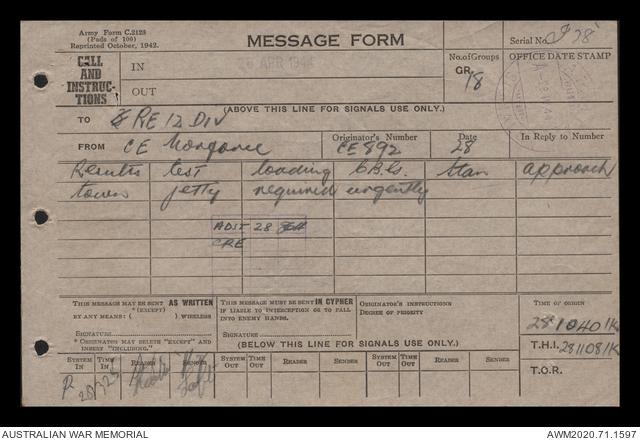 Army Form C.2128
(Pads of 100)
Reprinted October, 1942.
MESSAGE FORM
Serial No.
CALL AND INSTRUCTIONS
IN
26 APR 1944
OUT
No. of Groups
GR.
18
OFFICE DATE STAMP
(ABOVE THIS LINE FOR SIGNALS USE ONLY.)
TO RE 12 DIV
FROM CE
Originator's Number
CE 892
Date
28
In Reply to Number
Results test loading stan approach
town jetty required urgently
ADST 28
CRE
THIS MESSAGE MAY BE SENT AS WRITTEN
* (EXCEPT)
BY ANY MEANS: ( ) WIRELESS
SIGNATURE
* ORIGINATOR MAY DELETE "EXCEPT" AND INSERT "INCLUDING."
THIS MESSAGE MUST BE SENT IN CYPHER
IF LIABLE TO INTERCEPTION OR TO FALL INTO ENEMY HANDS.
SIGNATURE
ORIGINATOR'S INSTRUCTIONS
DEGREE OF PRIORITY
TIME OF ORIGIN
281040/K
T.H.I. 281108/K
T.O.R.
(BELOW THIS LINE FOR SIGNALS USE ONLY.)
SYSTEM IN TIME IN READER SENDER SYSTEM OUT TIME OUT READER SENDER SYSTEM OUT TIME OUT READER SENDER SYSTEM OUT TIME OUT READER SENDER
AUSTRALIAN WAR MEMORIAL
AWM2020.71.1597